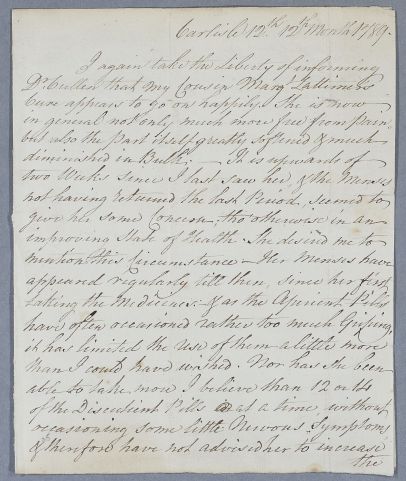 Carlisle 12.th 12.th Month 1789.
I again take the Liberty of informing
Dr Cullen that my Cousin Mary Lattimer's
Cure appears to go on happily. She is now
in general not only much more free from Pain
but also the Part itself greatly softened & much
diminished in Bulk. — It is upwards of
two Weeks since I last saw her, & the Menses
not having returned the last Period, seemed to
give her some Concern, tho' otherwise in an
improving State of Health. She desired me to
mention this Circumstance — Her Menses have
appeared regularly till then, since her first
taking the Medicines — & as the Aperient Pills
have often occasioned rather too much Griping,
it has limited the Use of them a little more
than I could have wished. Nor has she been
able to take more I believe than 12 or 14
of the Discutient Pills at a time, without
occasioning some little Nervous Symptoms,
& therefore have not advised her to increase
the